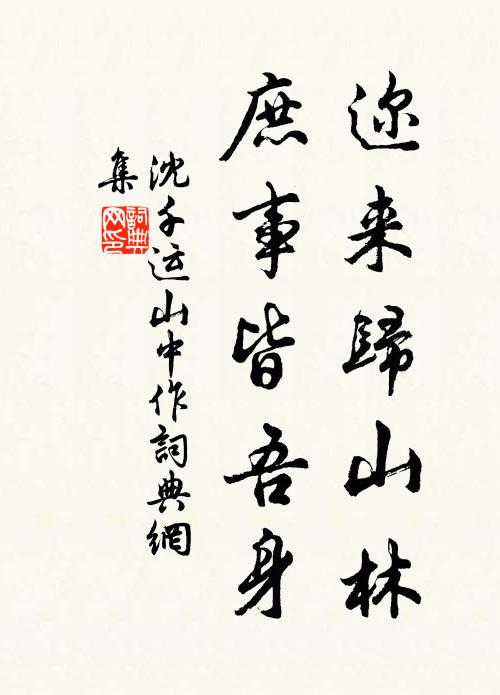 迩来歸山林
庶事皆吾身
沈千运山中作詞典網
集
詞典网印